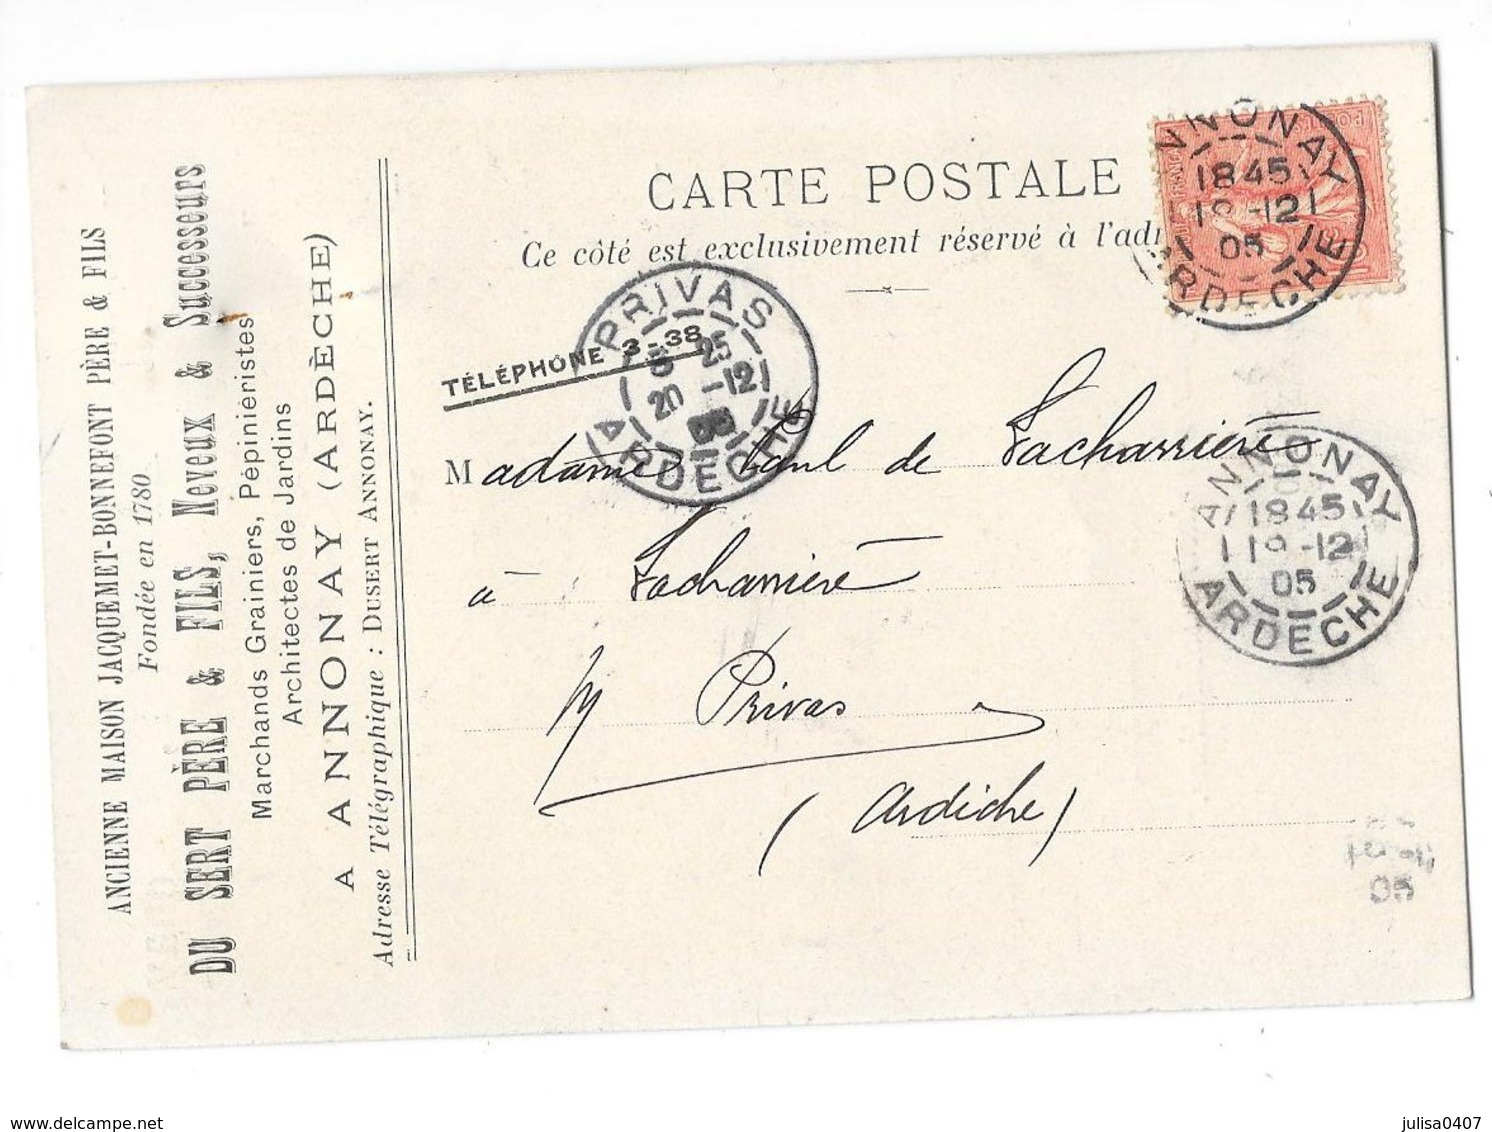 ANCIENNE MAISON JACQUEMET-BONNEFONT PÈRE & FILS
Fondée en 1780
DU SERT PÈRE & FILS, Neveux & Successeurs
Marchands Grainiers, Pépiniéristes
Architectes de Jardins
A ANNONAY (ARDÈCHE)
Adresse Télégraphique : DUSERT ANNONAY.
CARTE POSTALE
Ce côté est exclusivement réservé à l'adr
TÉLÉPHONE 3-38
Madame Paul de Lacharrière
à Lacharrière
Privas
(Ardèche)
ANNONAY
1845
19 -12
05
ARDECHE
PRIVAS
5 25
20 -12
ARDECHE
ANNONAY
1845
19 -12
05
ARDECHE
05
julisa0407